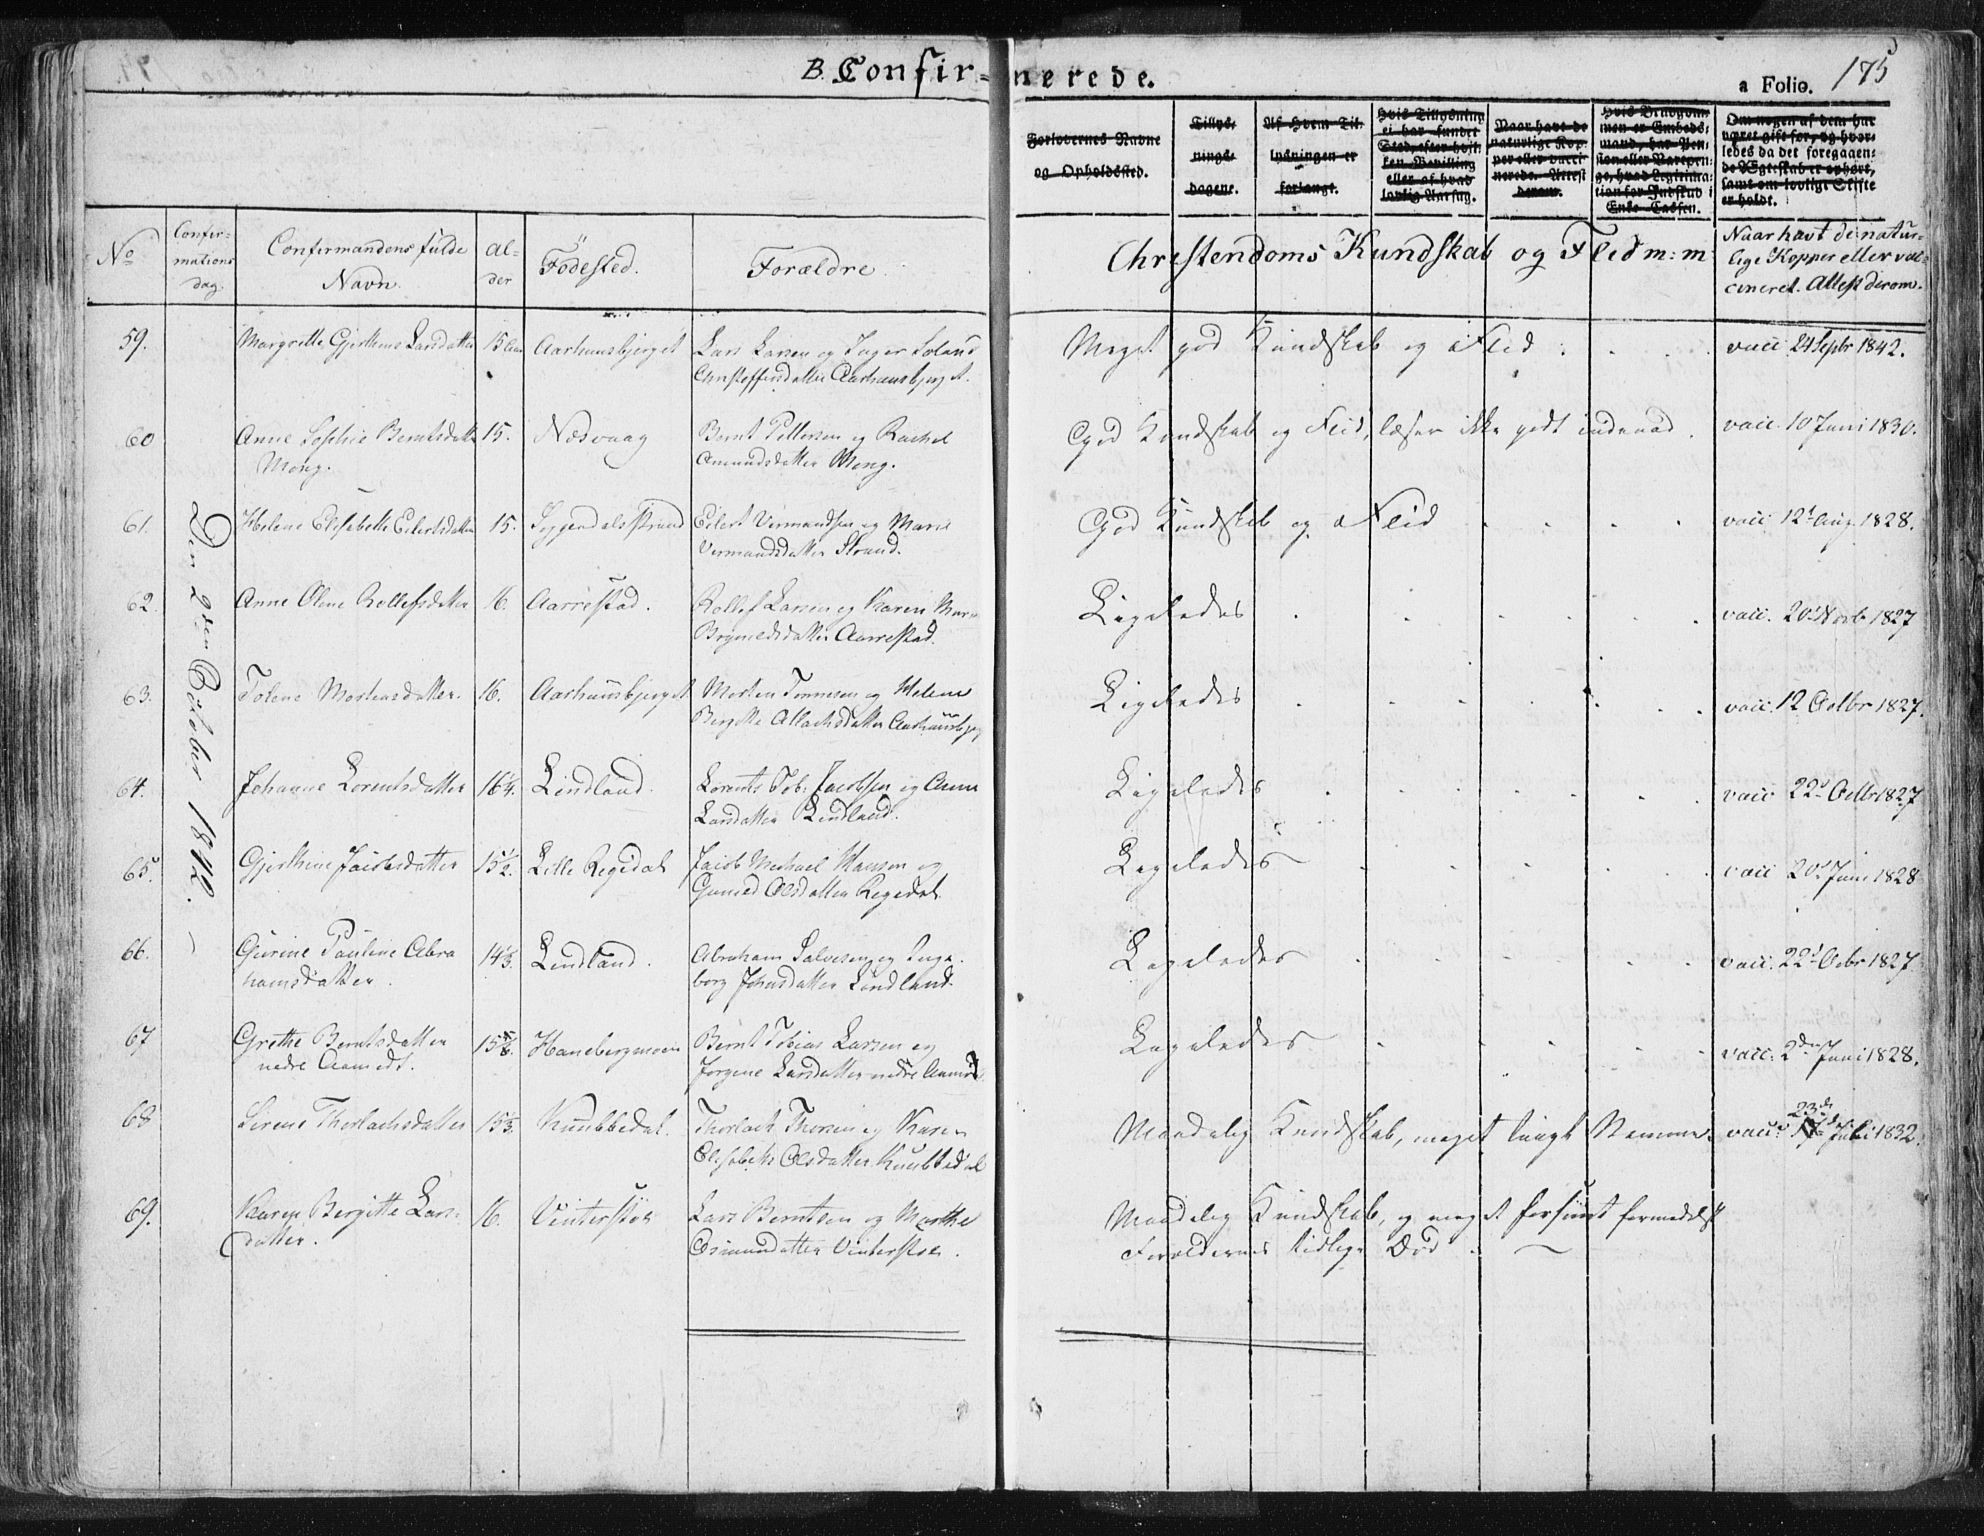 B. Confir=merede.
a Folio. 175
Forlovernes Navne og Opholdssted.
Tillys-
nings-
dagene.
Af Hvem Til-
lysningen er
forlangt.
Hvis Tillysning
ei har fundet
Sted, efter hvil-
ken Bevilling
eller af hvad
lovlig Aarsag.
Naar havt de
naturlige Kop-
per eller vacci-
nerede. Attest
derom.
Hvis Brudgom-
men er Embeds-
mand, har Pen-
sion eller Vartpen-
ge, hvad Legitima-
tion for Indskud i
Enke-Cassen.
Om nogen af dem har
været gift før, og hvor-
ledes da det foregaaen-
de Egteskab er ophørt,
samt om lovligt Skifte
er holdt.
No
Confir=
mations
dag.
Confirmandens fulde
Navn.
Al-
der
Födested.
Forældre.
Christendoms Kundskab og Flid m: m
Naar havt de natur-
lige Kopper eller vac-
cineret. Attest derom.
Den 2den October 1842.
59. Margrethe Gjertine Larsdatter 15 Aar Aarhausbjerget Lars Larsen og Inger Solend
Christoffersdatter Aarhausbjerget. Meget god Kundskab og Flid vacc 24 Septr 1842.
60 Anne Sophie Berntsdatter 15. Nedvaag Bernt Pettersen og Rachel
Mong. Amundsdatter Mong. God Kundskab og Flid, læser ikke godt indenad. vacc. 10 Juni 1830.
61. Helene Elisabeth Eilertsdatter 15. Syggendalsstrand Eilert Vermundsen og Maren
Vermundsdatter Strand. God Kundskab og Flid vacc. 12t Aug. 1828.
62. Anne Oline Rollefsdatter 16. Aarrestad. Rollef Larsen og Karen Mar
Brynildsdatter Aarrestad. Ligeledes vacc. 20t Novb 1827
63. Tolene Mortensdatter. 16. Aarhausbjerget Morten Tonnesen og Helene
Bergitte Atlaksdatter Aarhausbjg Ligeledes vacc. 12 Octbr 1827.
64. Johanne Lorentsdatter 16 1/4. Lindland. Lorents Tob: Jacobsen og Anne
Larsdatter Lindland. Ligeledes vacc 22d Octbr 1827
65. Gjertine Jacobsdatter 15 1/2. Lille Regedal Jacob Michael Hansen og
Gunild Olsdatter Regedal. Ligeledes vacc 20d Juni 1828
66. Gurine Pauline Abra
hamsdatter. 14 1/3. Lindland. Abraham Salvesen og Inge
borg Johnsdatter Lindland. Ligeledes vacc. 22d Octbr 1827
67 Grethe Berntsdatter
nedre Aamodt. 15 5/8. Hanebergmoen Bernt Tobias Larsen og
Jorgine Larsdatter nedre Aamodt Ligeledes vacc. 2den Juni 1828.
68 Serene Thorlachsdatter 15 1/3. Kubbedal. Thorlach Thorsen og Karen
Elisabeth Olsdatter Kubbedal Maadelig Kundskab, meget svagt Nemme. vacc. 23d Juli 1832.
69. Karen Bergitte Lars-
datter. 16. Vinterstøe Lars Berntsen og Marthe
Osmundatter Vinterstøe. Maadelig Kundskab, og meget forsømt formedelst
Forældrenes tidlige Død.